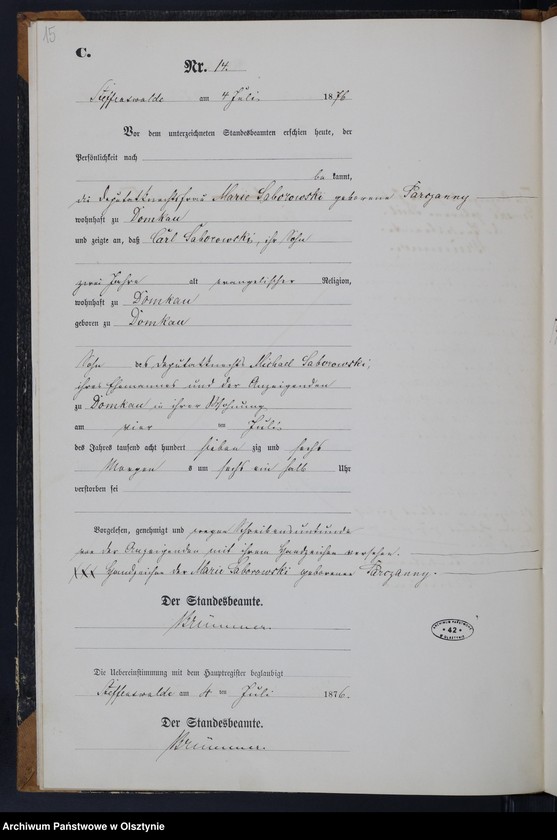 15
C.
Nr. 14.
Steffenswalde am 4 Juli. 1876
Vor dem unterzeichneten Standesbeamten erschien heute, der
Persönlichkeit nach
bekannt,
die Deputatknechtsfrau Marie Saborowski geborene Parczanny
wohnhaft zu Domkau
und zeigte an, daß Carl Saborowski, ihr Sohn
zwei Jahre alt evangelischer Religion,
wohnhaft zu Domkau
geboren zu Domkau
Sohn des Deputatknechts Michael Saborowski,
ihres Ehemannes und der Anzeigenden
zu Domkau in ihrer Wohnung
am vier ten Juli
des Jahres tausend acht hundert sieben zig und sechs
Morgens um sechs ein halb Uhr
verstorben sei
Vorgelesen, genehmigt und wegen Schreibensunkunde
von der Anzeigenden mit ihrem Handzeichen versehen.
XXX Handzeichen der Marie Saborowski geborene Parczanny.
Der Standesbeamte.
Brümmer.
Die Uebereinstimmung mit dem Hauptregister beglaubigt
Steffenswalde am 4 ten Juli 1876.
Der Standesbeamte.
Brümmer.
42
Archiwum Państwowe w Olsztynie